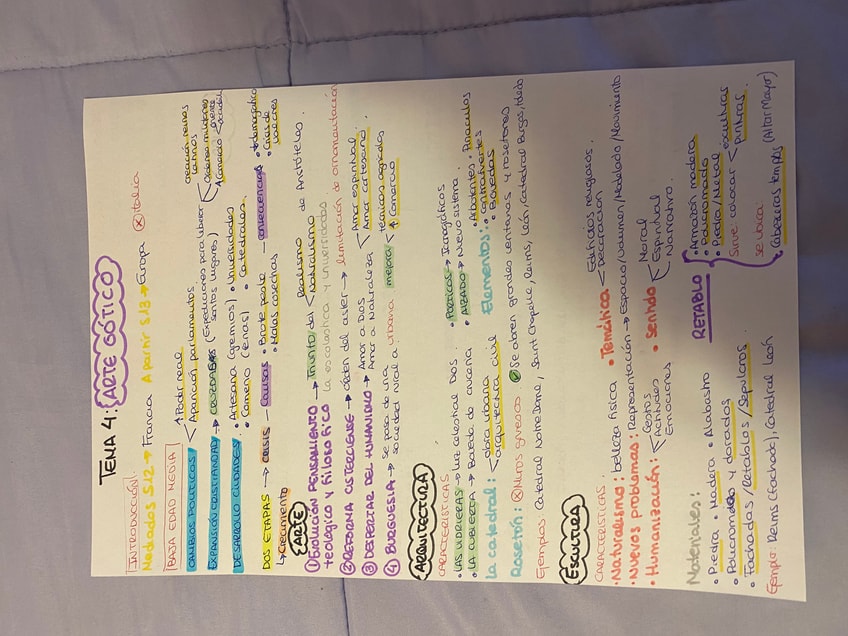 TEMA 4: ARTE GÓTICO
INTRODUCCIÓN
Mediados S12 → Francia A partir S13 → Europa ⓧ Italia
BAJA EDAD MEDIA
CAMBIOS POLÍTICOS < ↑ Poder real
Aparición parlamentos
creación reinos latinos
EXPANSIÓN CRISTIANDAD → CRUZADAS (Expediciones para liberar santos lugares) < Ordenes militares
↑ Comercio < oriente
occidente
DESARROLLO CIUDADES • Artesana (gremios) • Universidades
• Comercio (ferias) • Catedrales.
DOS ETAPAS → CRISIS — causas • Brote peste — consecuencias • ↓ demográfico
• Malas cosechas • Crisis de valores
↳ Crecimiento
ARTE
① Evolución PENSAMIENTO teológico y filosófico → Triunfo del < Realismo
Naturalismo de Aristóteles.
la escolástica y universidades
② REFORMA CISTERCIENSE → Orden del císter → limitación de ornamentación
③ DESPERTAR DEL HUMANISMO → Amor a Dios < Amor espiritual
Amor a Naturaleza Amor cortesano
④ BURGUESIA → Se pasa de una sociedad rural a urbana mejora < técnicas agrícolas
↑ Comercio
ARQUITECTURA
CARACTERÍSTICAS
• LAS VIDRIERAS → luz celestial Dios • PÓRTICOS → Iconográficos
• LA CUBIERTA → Bóveda de crucería • ALZADO → Nuevo sistema
La catedral: < obra urbana
arquitectura civil
Elementos: • Arbotantes • Pináculos
• contrafuertes
• Bóvedas
Rosetón: ⓧ Muros gruesos Se abren grandes ventanas y rosetones
Ejemplos: Catedral Notre Dame, Saint Chapelle, Reims, León, Catedral Burgos, toledo
ESCULTURA
CARACTERÍSTICAS
• Naturalismo: belleza física • Temática < Edificios religiosos.
Decoración
• Nuevos problemas: Representación → Espacio/Volumen/Modelado/Movimiento
• Humanización: < Gestos
Actitudes
Emociones
• Sentido < Moral
Espiritual
Narrativo.
Materiales:
• Piedra • Madera • Alabastro
• Policromados y dorados
• Fachadas/Retablos/Sepulcros
Ejemplo: Reims (Fachada), Catedral León
RETABLO
• Armazón madera
• Policromado
• Piedra/Metal
Sirve: colocar < esculturas
pinturas.
se ubica:
Cabeceras templos (Altar Mayor)